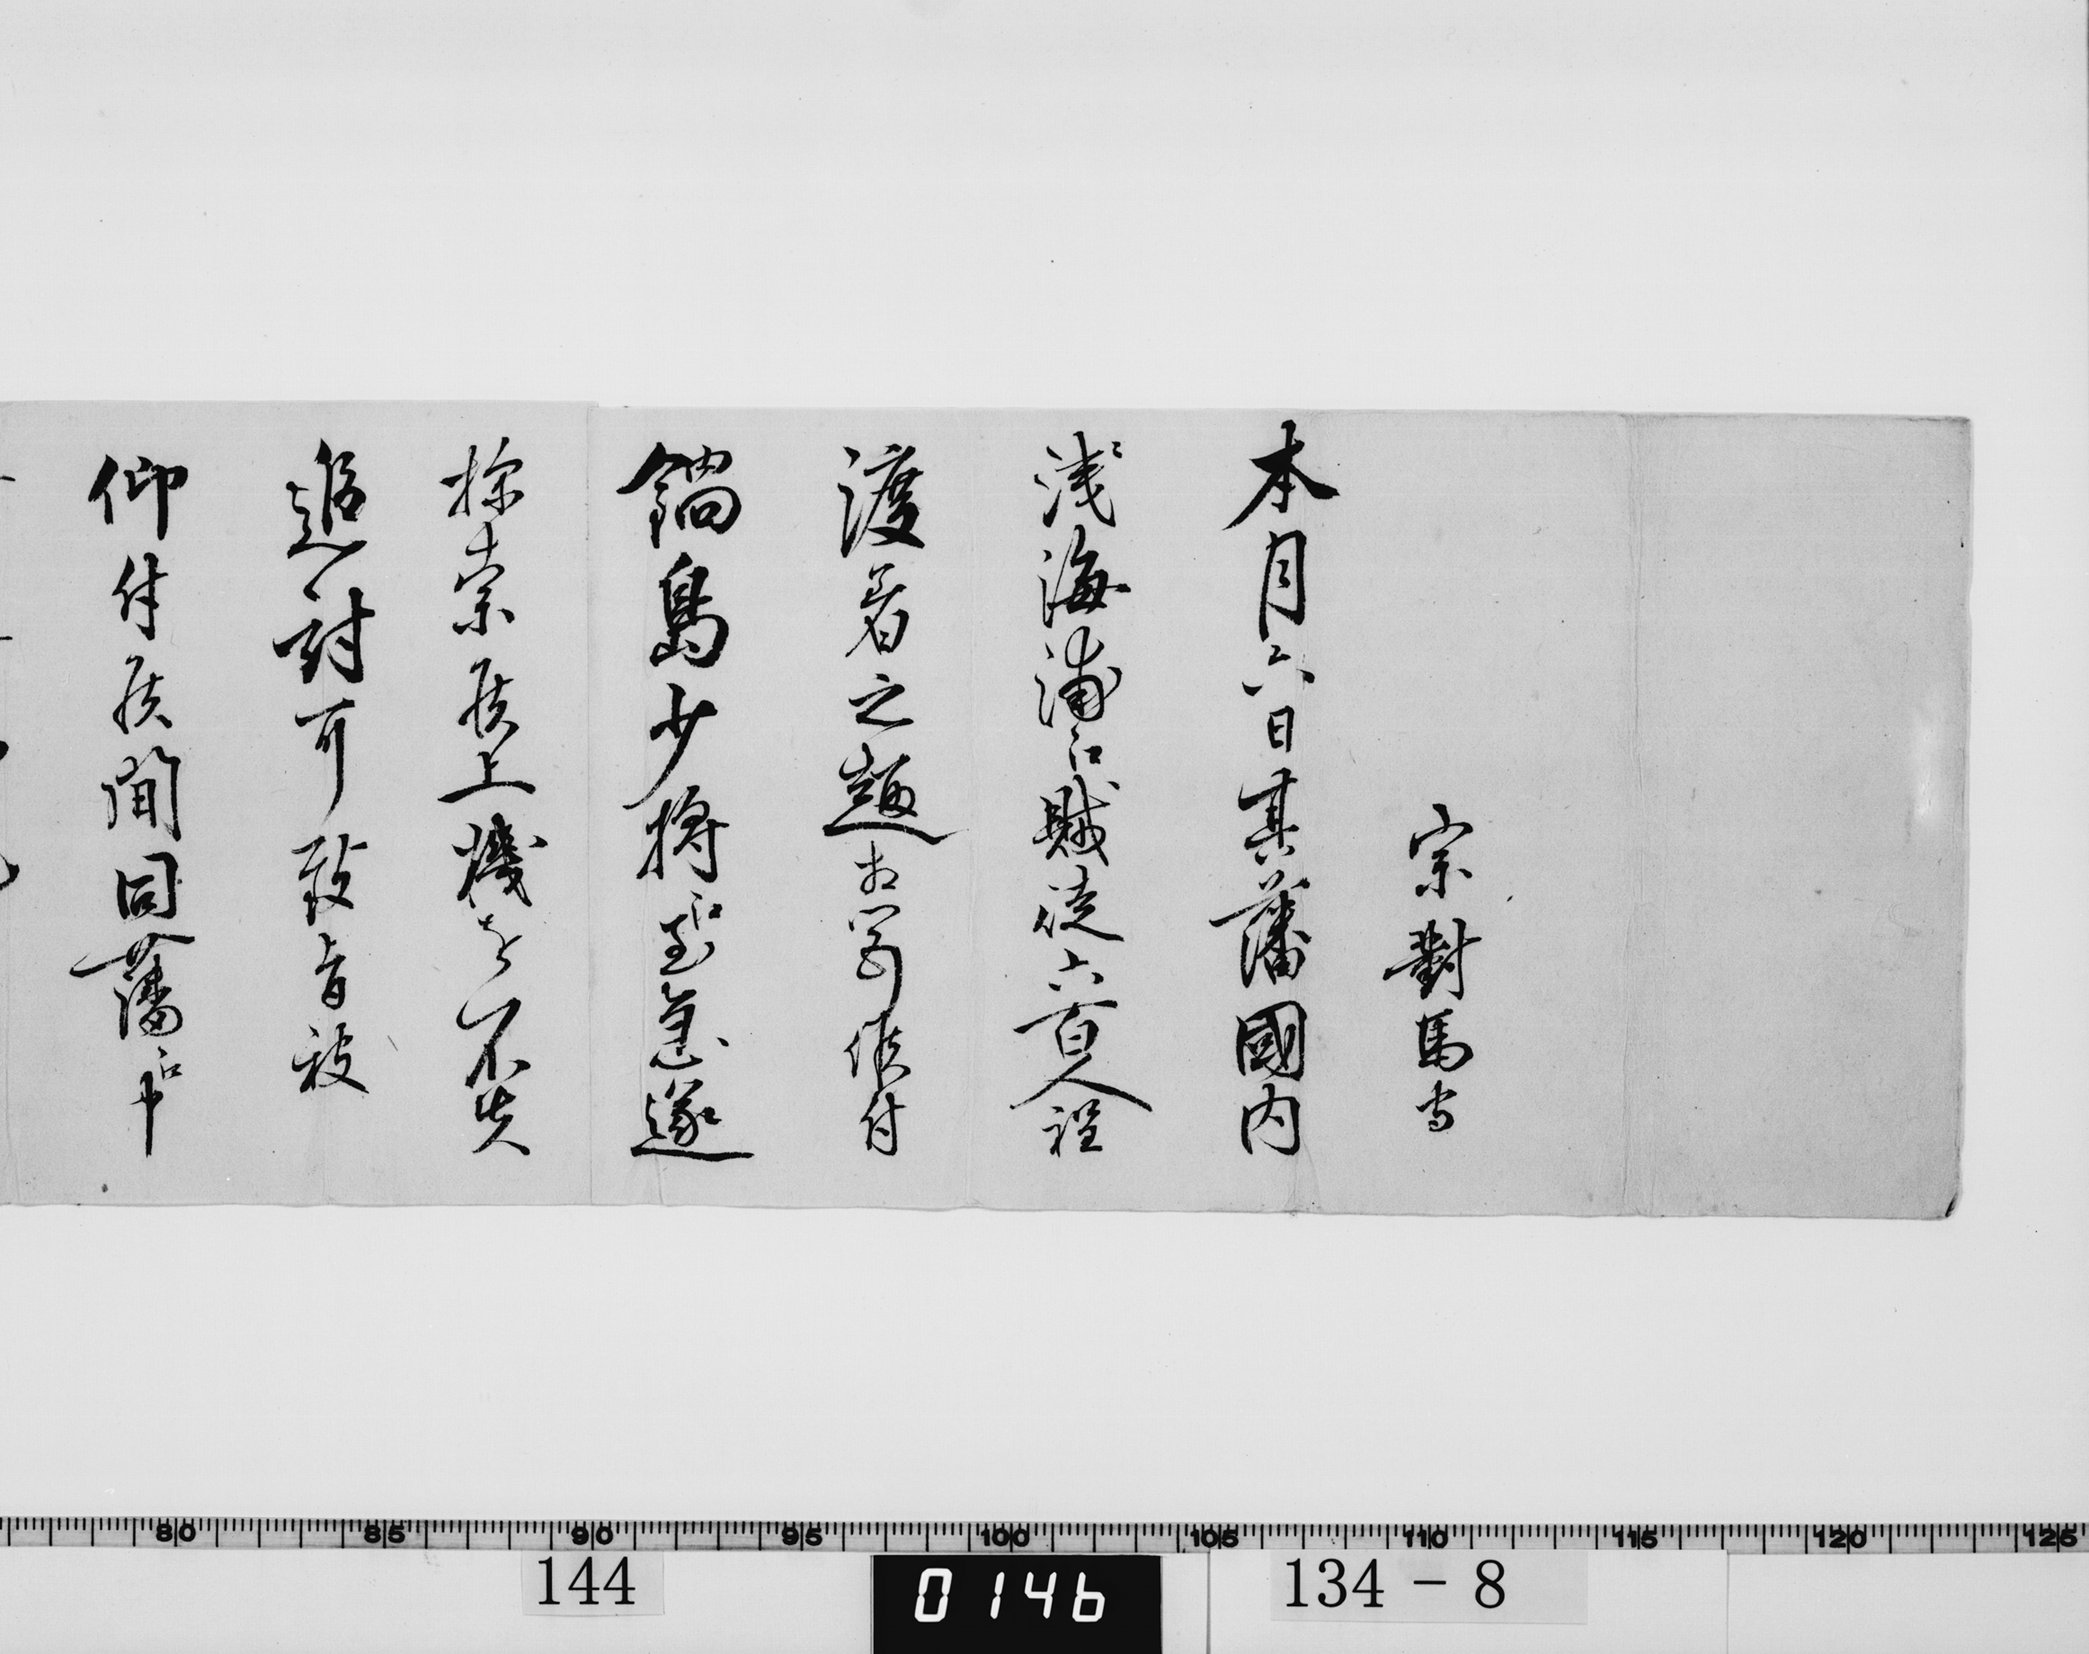 宗對馬守
本月六日其藩國内
浅海浦江賊徒六百人程
渡着之趣相聞候付
鍋島少將江至急遂
探索候上機を不失
追討可致旨被
仰付候間同藩江申
80 85 90 95 100 105 110 115 120 125
144 0146 134-8